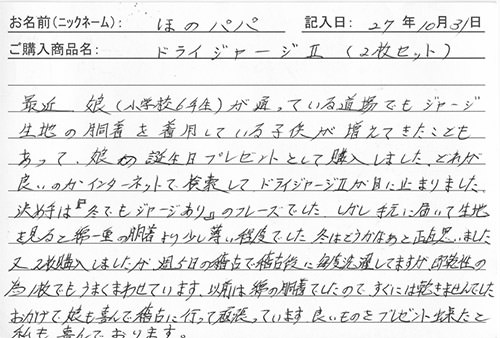 お名前(ニックネーム): ほのパパ 記入日: 27年10月31日
ご購入商品名: ドライジャージⅡ (2枚セット)
最近、娘(小学校6年生)が通っている道場でもジャージ
生地の胴着を着用している子供が増えてきたことも
あって、娘の誕生日プレゼントとして購入しました、どれが
良いのかインターネットで検索して、ドライジャージⅡが目に止まりました、
決め手は『冬でもジャージあり』のフレーズでした、しかし手元に届いて生地
を見ると綿一重の胴着より少し薄い程度でした 冬はどうかなあと正直思いました
又2枚購入しましたが週5日の稽古で稽古後に毎度洗濯してますが即乾性の
為1枚でもうまくまわせています、以前は綿の胴着でしたので、すぐには乾きませんでした
おかげで娘も喜んで稽古に行って頑張っています 良いものをプレゼント出来たと
私も喜んでおります。